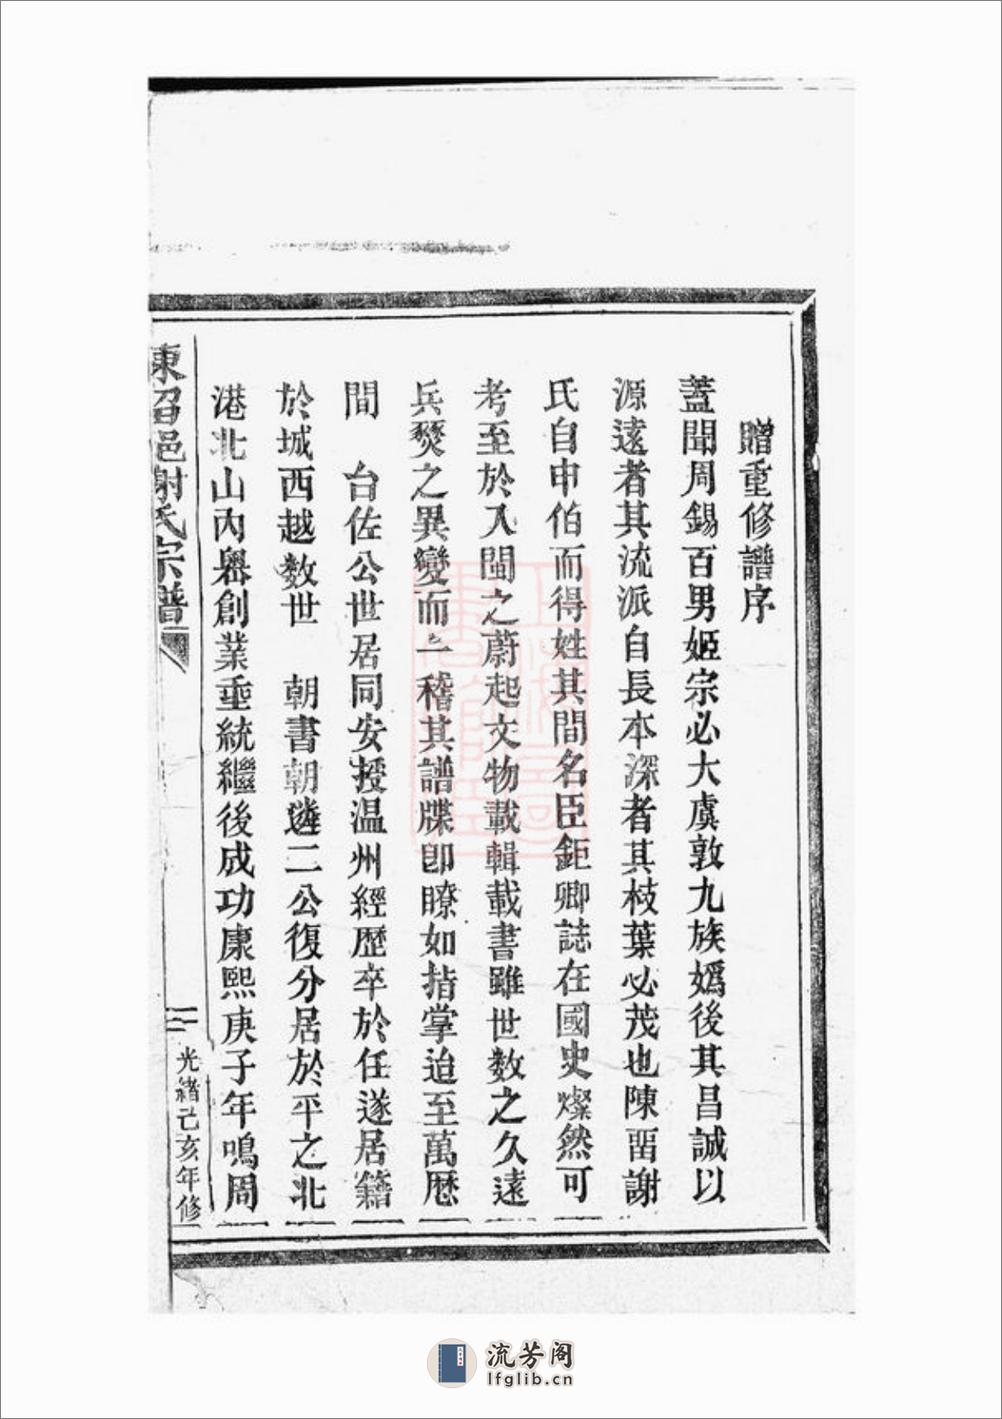 贈重修譜序
蓋聞周錫百男姬宗必大虞敦九族媯後其昌誠以
源遠者其流派自長本深者其枝葉必茂也陳畱謝
氏自申伯而得姓其間名臣鉅卿誌在國史燦然可
考至於入閩之蔚起文物載輯載書雖世數之久遠
兵燹之異變而一稽其譜牒卽瞭如指掌迨至萬曆
間 台佐公世居同安授温州經歴卒於任遂居籍
於城西越数世 朝書朝遴二公復分居於平之北
港北山內嶴創業垂統繼後成功康熙庚子年鳴周
東谷邑謝氏宗譜
二
光緒己亥年修
流芳阁
lfglib.cn